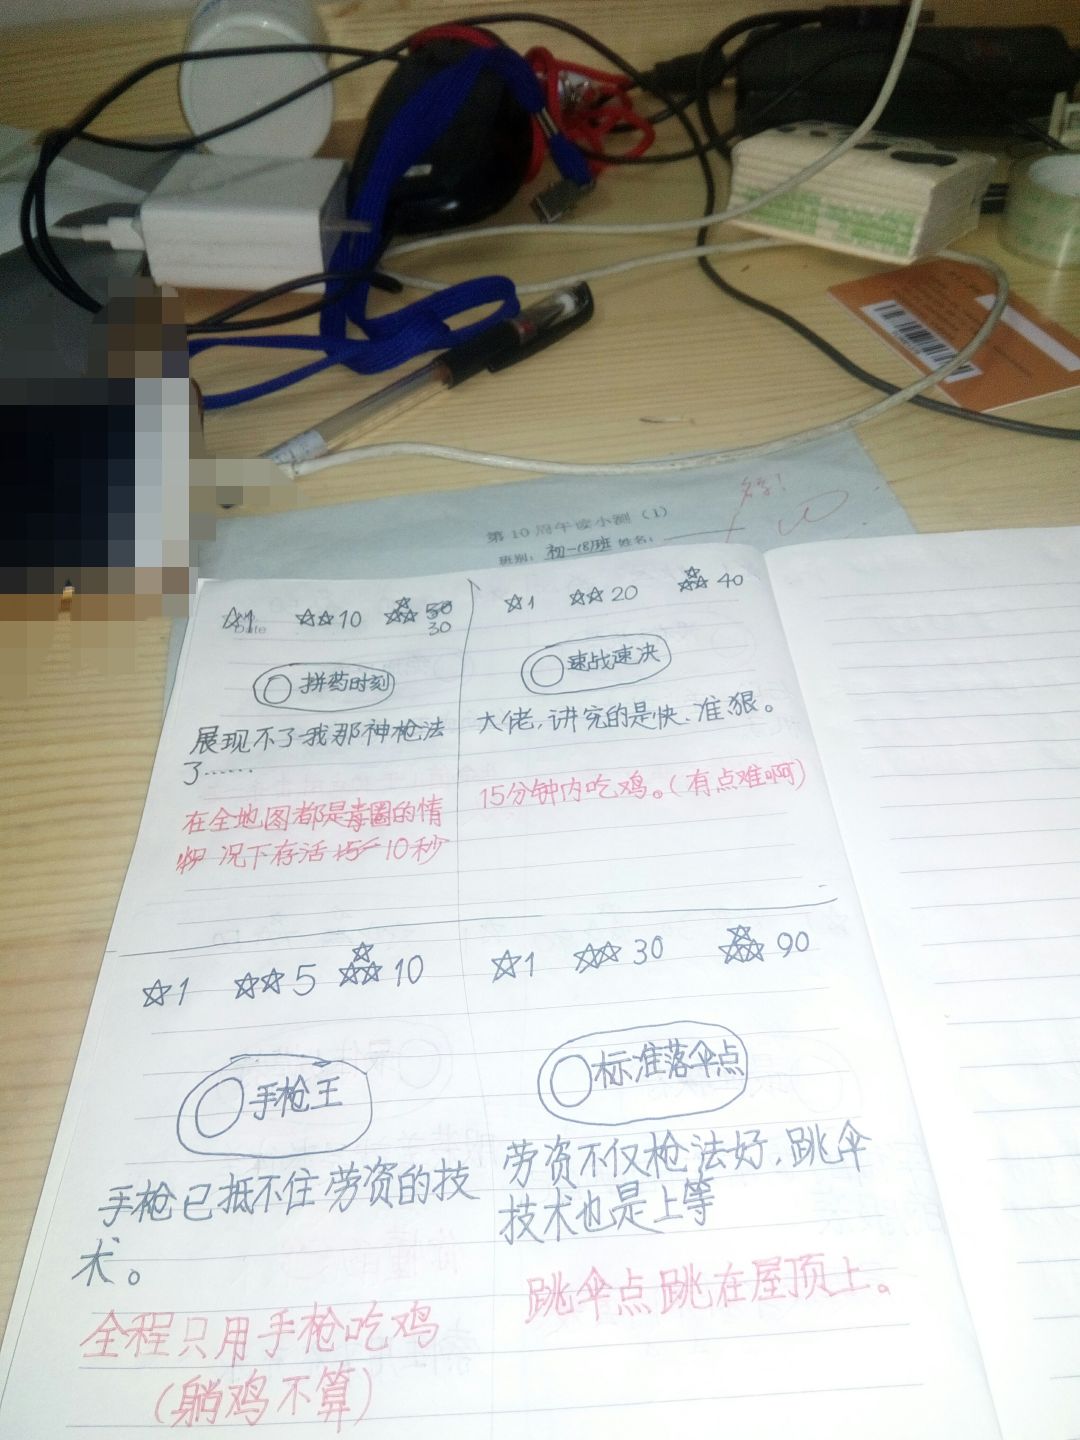 第10周午读小测（1）
班别：初一(8)班 姓名：
☆1 ☆☆10 ☆☆☆ 50
30
拼药时刻
展现不了我那神枪法
了……
在全地图都是毒圈的情
况下存活 15 10秒
☆1 ☆☆20 ☆☆☆40
速战速决
大佬，讲究的是快、准、狠。
15分钟内吃鸡。（有点难啊）
☆1 ☆☆5 ☆☆☆10
手枪王
手枪已抵不住劳资的技
术。
全程只用手枪吃鸡
（躺鸡不算）
☆1 ☆☆30 ☆☆☆90
标准落伞点
劳资不仅枪法好，跳伞
技术也是上等
跳伞点跳在屋顶上。